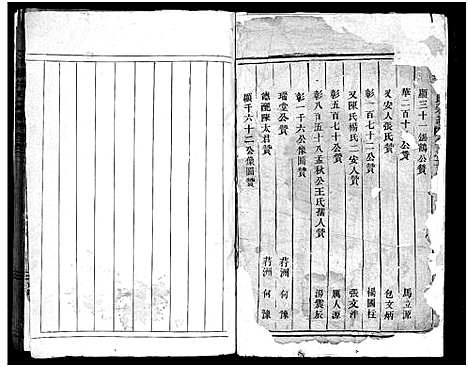 顯三十二錫鶴公贊　馬立源
華二百十　公贊
又安人張氏贊　包文炳
彰一百七十二公贊　楊國柱
又陳氏楊氏二安人贊　張文泮
彰五百七十公贊　厲人源
彰八百五十八孟狄公王氏孺人贊　湯震辰
彰一千六公像圖贊
瑞堂公贊　荇洲　何豫
德配陳太君贊　荇洲　何豫
顯千六十二公像圖贊